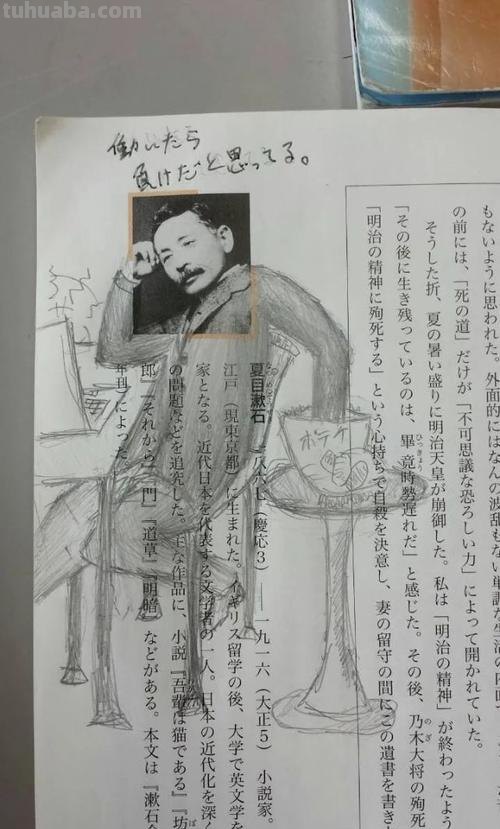 tuhuaba.com
働いたら
負けだと思ってる。
もないように思われた。外面的にはなんの波乱もない単調な生活の内面で
の前には、「死の道」だけが「不可思議な恐ろしい力」によって開かれていた。
そうした折、夏の暑い盛りに明治天皇が崩御した。私は「明治の精神」が終わったよう
「その後に生き残っているのは、畢竟時勢遅れだ」と感じた。その後、乃木大将の殉死
「明治の精神に殉死する」という心持ちで自殺を決意し、妻の留守の間にこの遺書を書き
ポテチ
夏目漱石 一八六七(慶応3)——一九一六(大正5) 小説家。
江戸(現東京都)に生まれた。イギリス留学の後、大学で英文学を
家となる。近代日本を代表する文学者の一人。日本の近代化を深く
の問題などを追究した。主な作品に、小説『吾輩は猫である』『坊
郎』『それから』『門』『道草』『明暗』などがある。本文は『漱石全
年刊)によった。